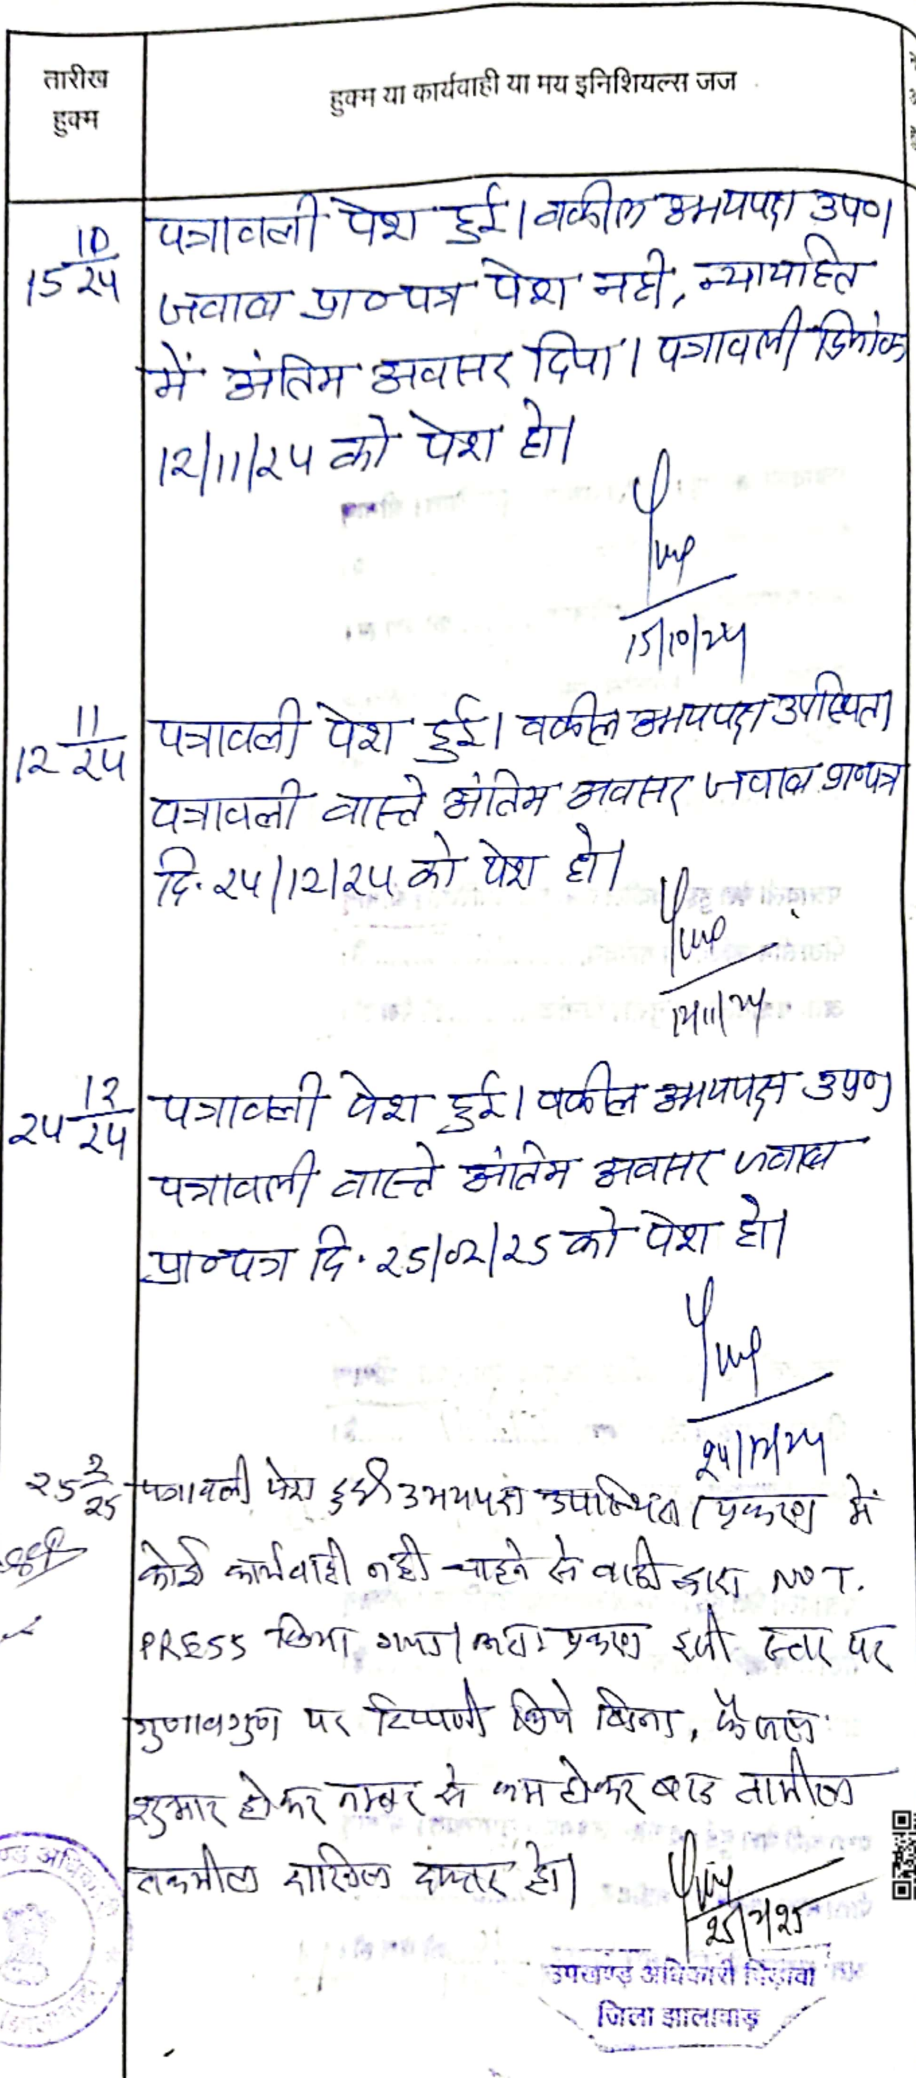 तारीख
हुक्म
हुक्म या कार्यवाही या मय इनिशियल्स जज
15 10/24
पत्रावली पेश हुई। वकील उभयपक्ष उप०।
जवाब प्रा०पत्र पेश नही, न्यायहित
में अंतिम अवसर दिया। पत्रावली दिनांक
12/11/24 को पेश हो।
15/10/24
12 11/24
पत्रावली पेश हुई। वकील उभयपक्ष उपस्थित।
पत्रावली वास्ते अंतिम अवसर जवाब प्रा०पत्र
दि. 24/12/24 को पेश हो।
12/11/24
24 12/24
पत्रावली पेश हुई। वकील उभयपक्ष उप०।
पत्रावली वास्ते अंतिम अवसर जवाब
प्रा०पत्र दि. 25/02/25 को पेश हो।
24/12/24
25 2/25
पत्रावली पेश हुई। उभयपक्ष उपस्थित। प्रकरण में
कोई कार्यवाही नही चाहने से वादी द्वारा NOT.
PRESS किया गया। अतः प्रकरण इसी स्तर पर
गुणावगुण पर टिप्पणी किये बिना, फैसल
शुमार होकर नम्बर से कम होकर बाद तामील
तकमील दाखिल दफ्तर हो।
25/2/25
उपखण्ड अधिकारी पिड़ावा
जिला झालावाड़